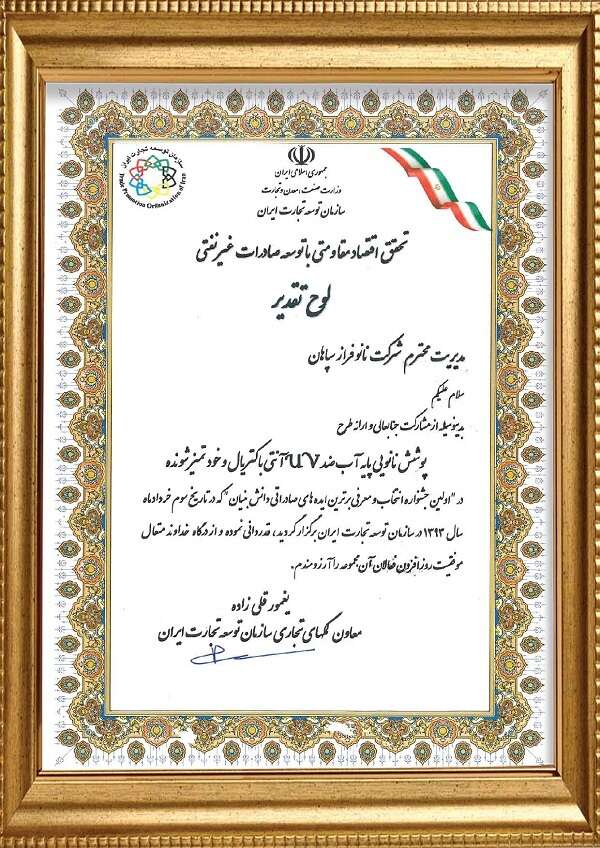 سازمان توسعه تجارت ایران
Trade Promotion Organization of Iran
جمهوری اسلامی ایران
وزارت صنعت، معدن و تجارت
سازمان توسعه تجارت ایران
تحقق اقتصاد مقاومتی با توسعه صادرات غیر نفتی
لوح تقدیر
مدیریت محترم شرکت نانو فراز سپاهان
سلام علیکم
بدینوسیله از مشارکت جنابعالی و ارائه طرح
پوشش نانویی پایه آب ضد uv آنتی باکتریال و خود تمیز شونده
در "اولین جشنواره انتخاب و معرفی برترین ایده های صادراتی دانش بنیان" که در تاریخ سوم خرداد ماه
سال ۱۳۹۳ در سازمان توسعه تجارت ایران برگزار گردید، قدردانی نموده و از درگاه خداوند متعال
موفقیت روز افزون فعالان آن مجموعه را آرزومندم.
یغمور قلی زاده
معاون کمکهای تجاری سازمان توسعه تجارت ایران